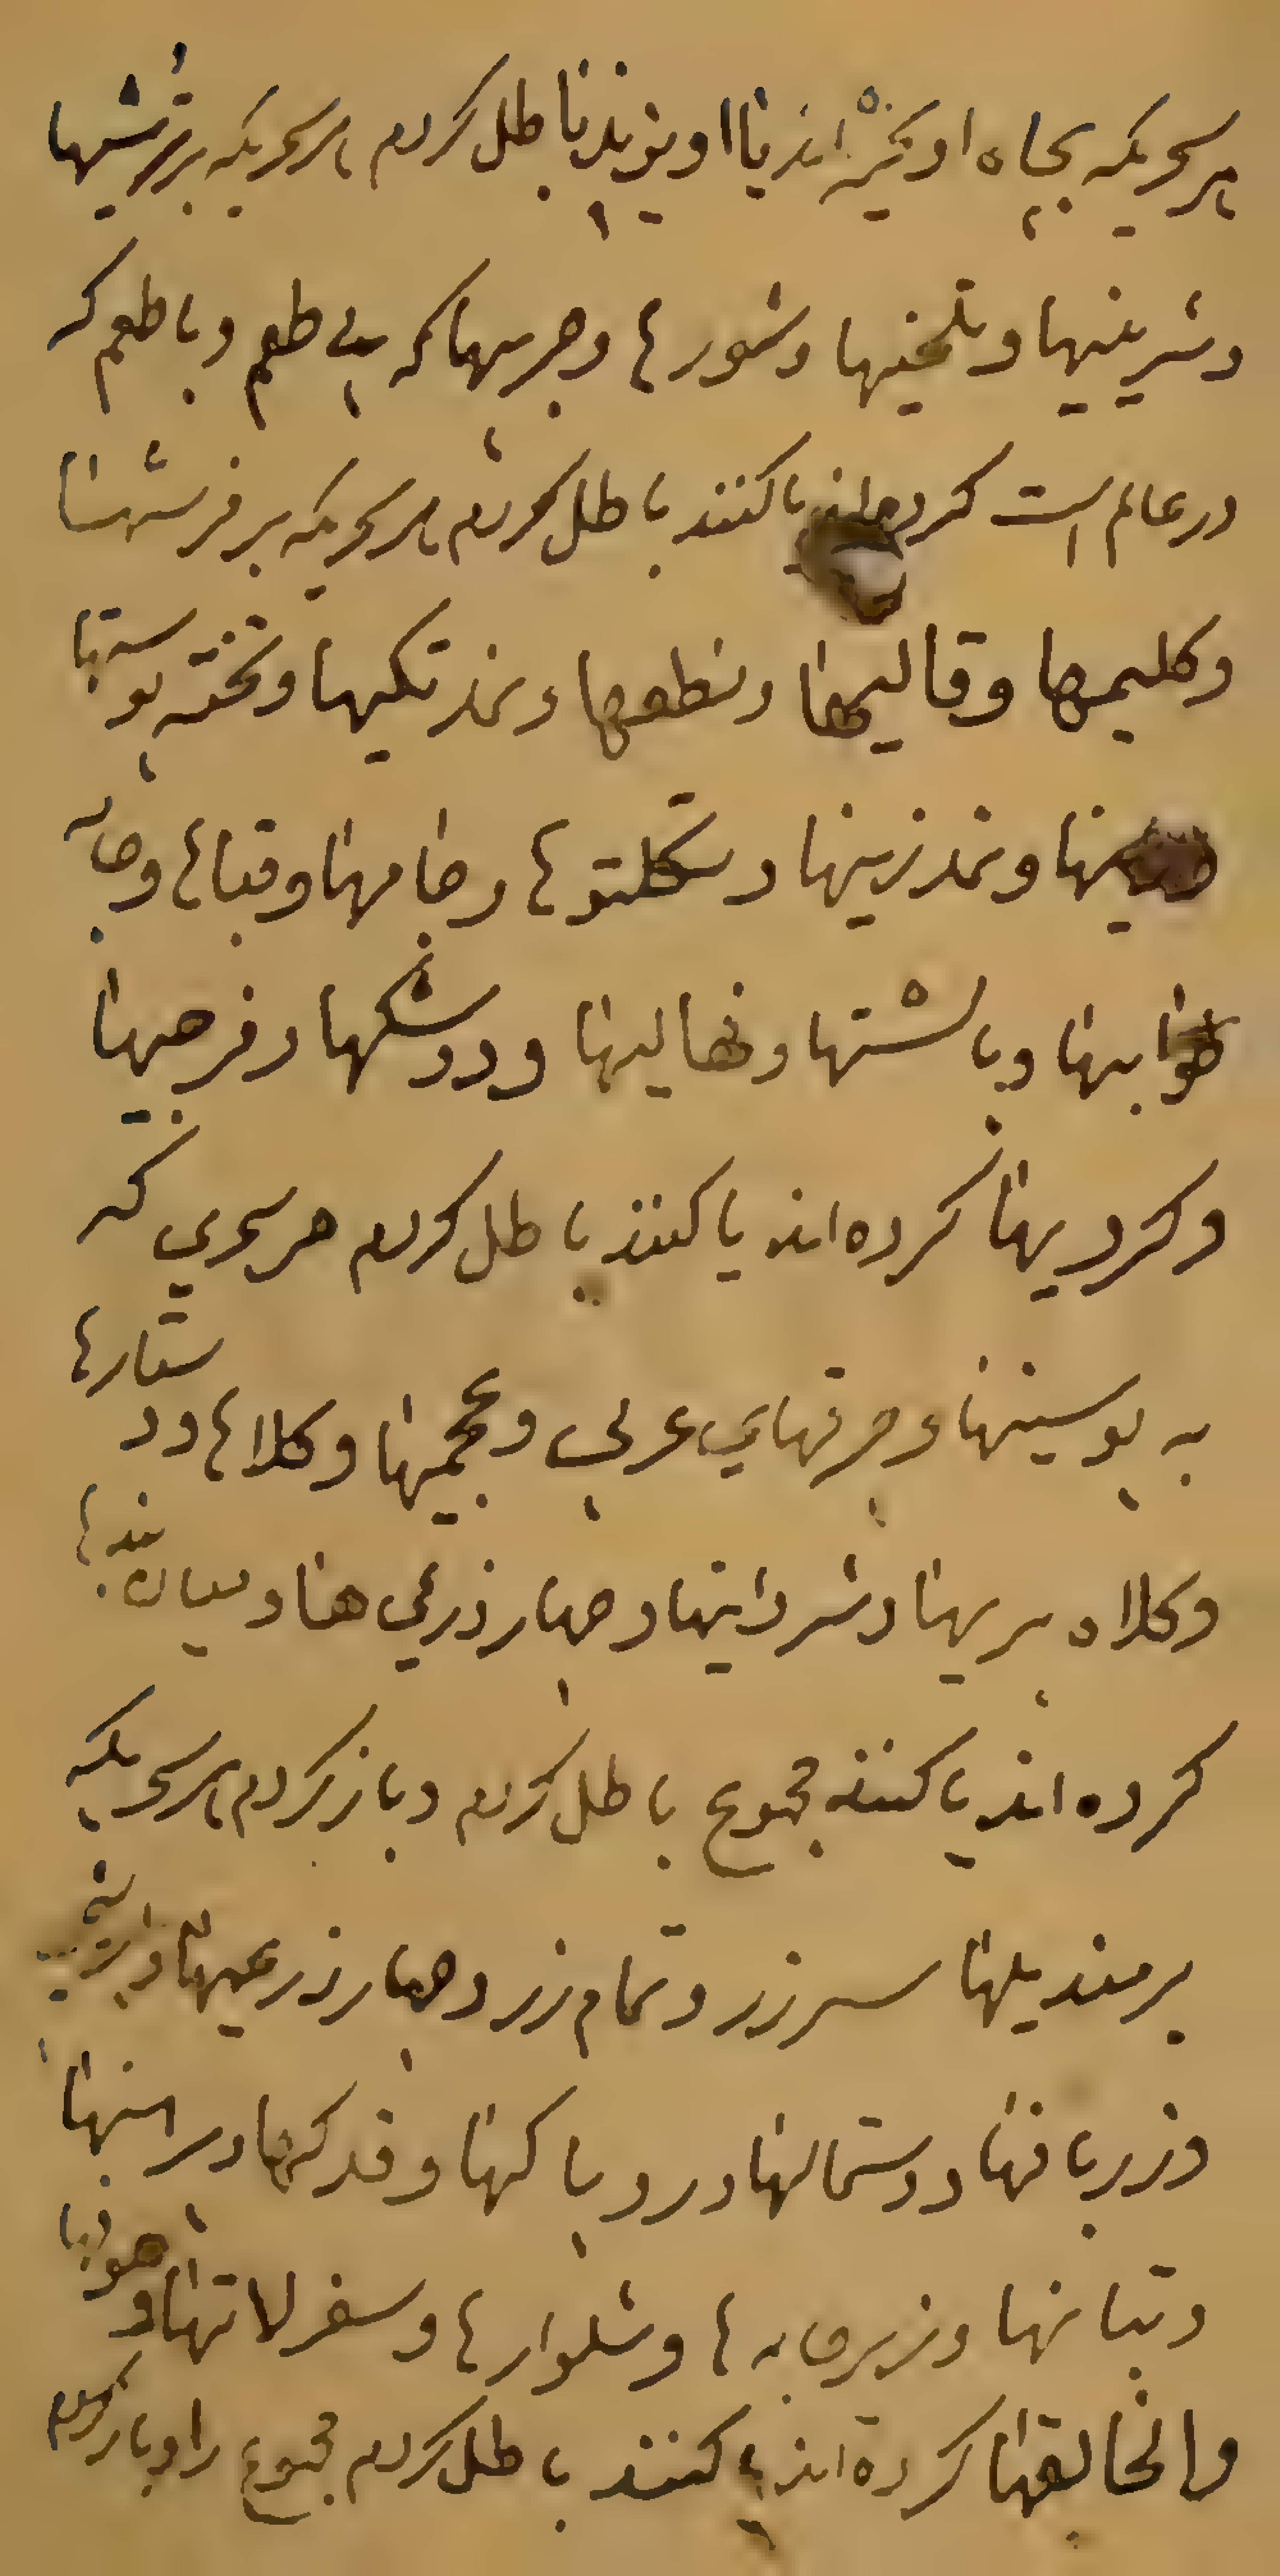 هر سحریکه بچاه اویخته اند یا اویزند یا باطل کردم هر سحریکه بر ترشیها
و شرینیها و تلخیها و شورها و چربیها که بی طعم و با طعم که
در عالم است کرده اند یا کنند باطل کردم هر سحریکه بر فرشها
و کلیمها و قالیها و نطعها و نمد تکیها و تخته پوستها
و نمد زینها و تکلتوها و جامها و قباها و جامه
خوابها و بالشتها و نهالیها و دوشکها و فرجیها
و کردیها کرده اند یا کنند باطل کردم هر سحری که
به پوسینها و چرقهای عربی و عجمیها و کلاها و دستارها
و کلاه پریها و شردانیها و چهار ذرعی ها و میان بندها
کرده اند یا کنند مجموع باطل کردم و باز کردم هر سحریکه
بر مندیلها سرزر و تمام زر و چهار ذرعیها و
و زربافها و دستمالها و روپاکها و قدکها و
و تبانها و زیرجامه ها و شلوارها و سقرلاتها و
و الخالقها کرده اند یا کنند باطل کردم مجموع را و باز کردم